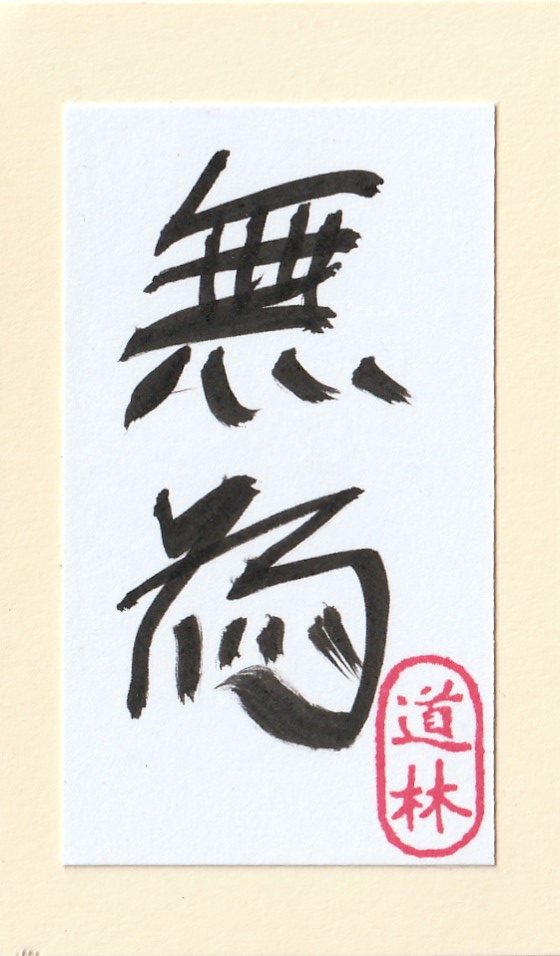 無為
道林